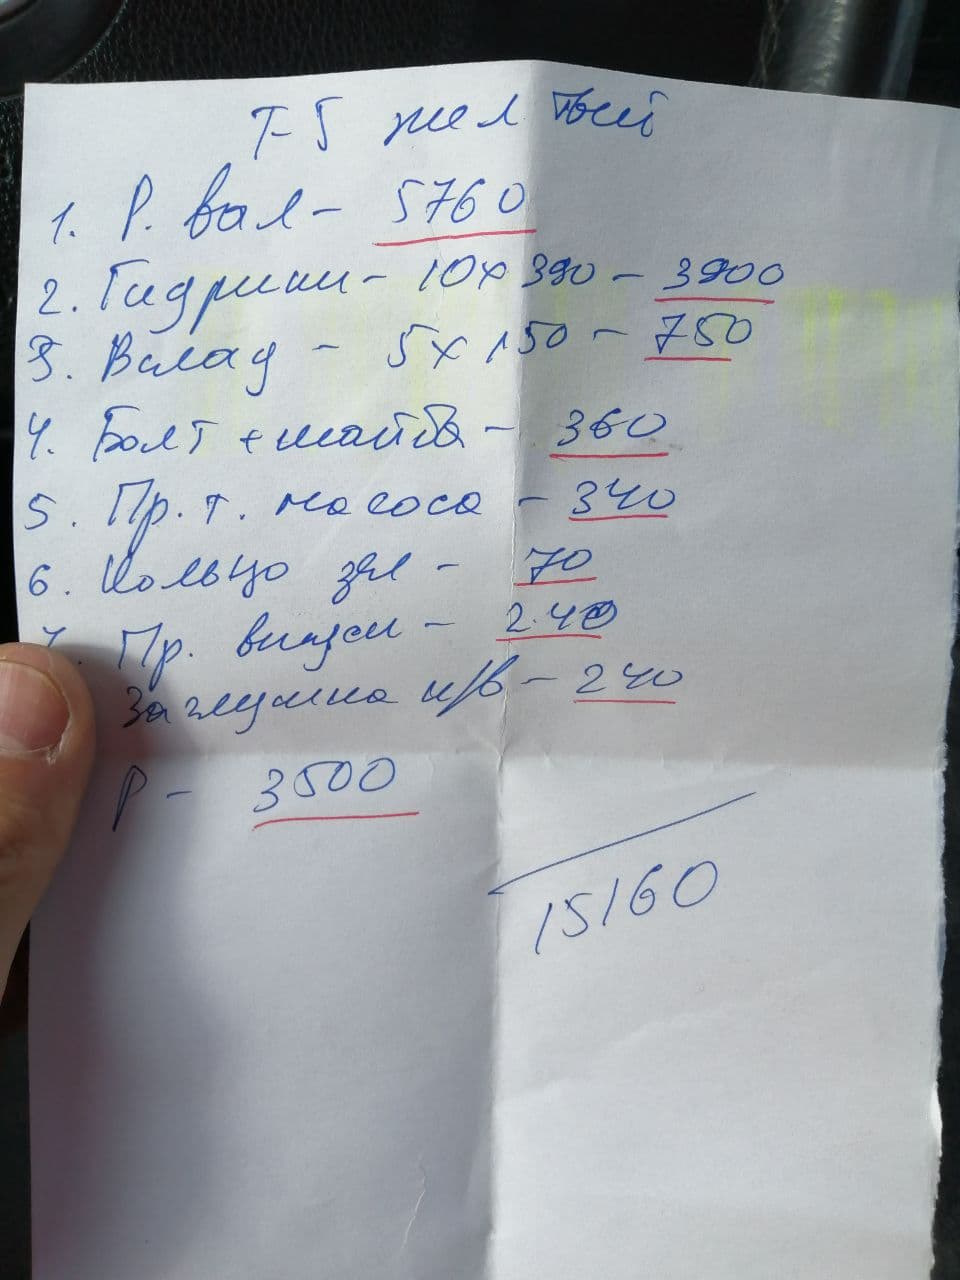 Т-5 желтый
1. Р. вал - 5760
2. Гидрики - 10х390 - 3900
3. Вклад - 5х150 - 750
4. Болт + шайба - 360
5. Пр. т. насоса - 340
6. Кольцо зел - 70
7. Пр. впуск - 240
Заглушка к/в - 240
Р - 3500
15160